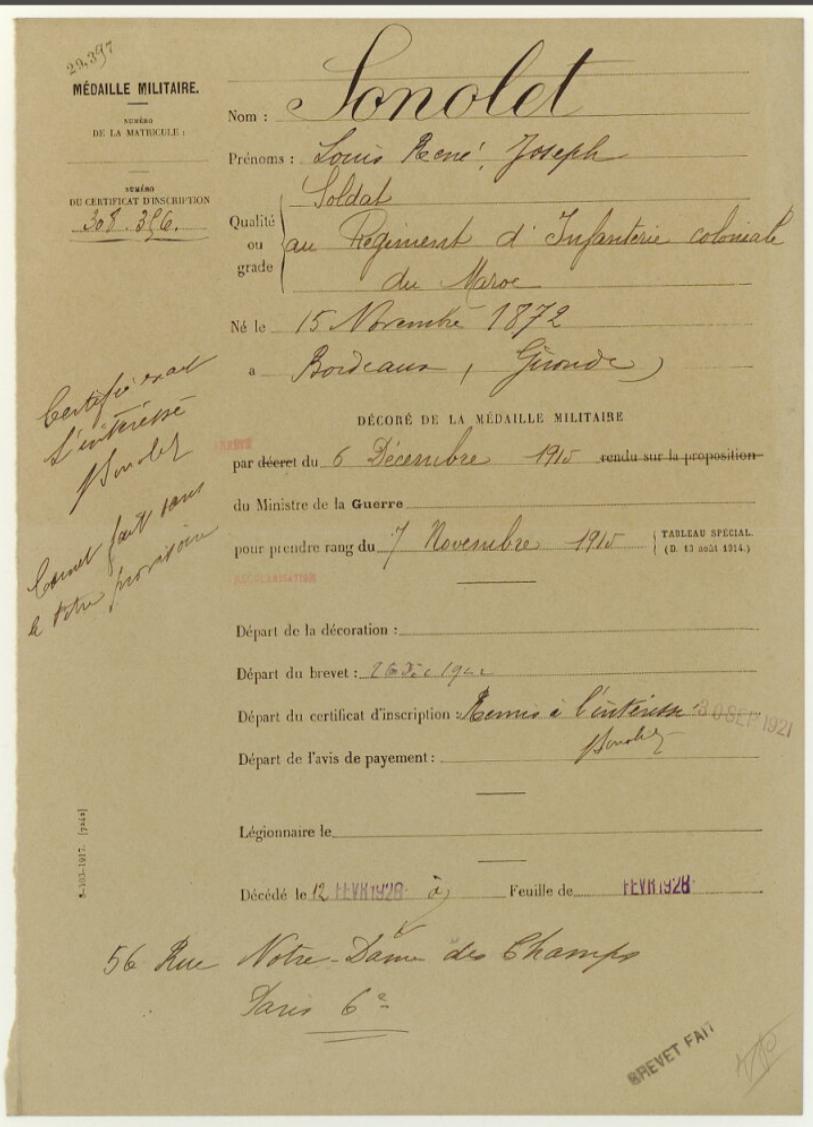 29,397
MÉDAILLE MILITAIRE.
NUMÉRO
DE LA MATRICULE :
NUMÉRO
DU CERTIFICAT D'INSCRIPTION
308.396.
Nom : Sonolet
Prénoms : Louis René, Joseph
Qualité ou grade Soldat
au Régiment d'Infanterie coloniale
du Maroc
Né le 15 Novembre 1872
a Bordeaux, (Gironde)
Certifié exact
L'intéressé
Sonolet
DÉCORÉ DE LA MÉDAILLE MILITAIRE
ARRÊTÉ
par décret du 6 Décembre 1915 rendu sur la proposition
du Ministre de la Guerre
pour prendre rang du 7 Novembre 1915 TABLEAU SPÉCIAL.
(D. 13 août 1914.)
fait sans
le titre provisoire
RÉGULARISATION
Départ de la décoration :
Départ du brevet : 26 Déc 192
Départ du certificat d'inscription : Remis à l'intéressé 30 SEP 1921
Sonolet
Départ de l'avis de payement :
Légionnaire le
Décédé le 12 FEVR 1928 à Feuille de FEVR 1928
5-103-1917. [7242]
56 Rue Notre-Dame des Champs
Paris 6e
BREVET FAIT